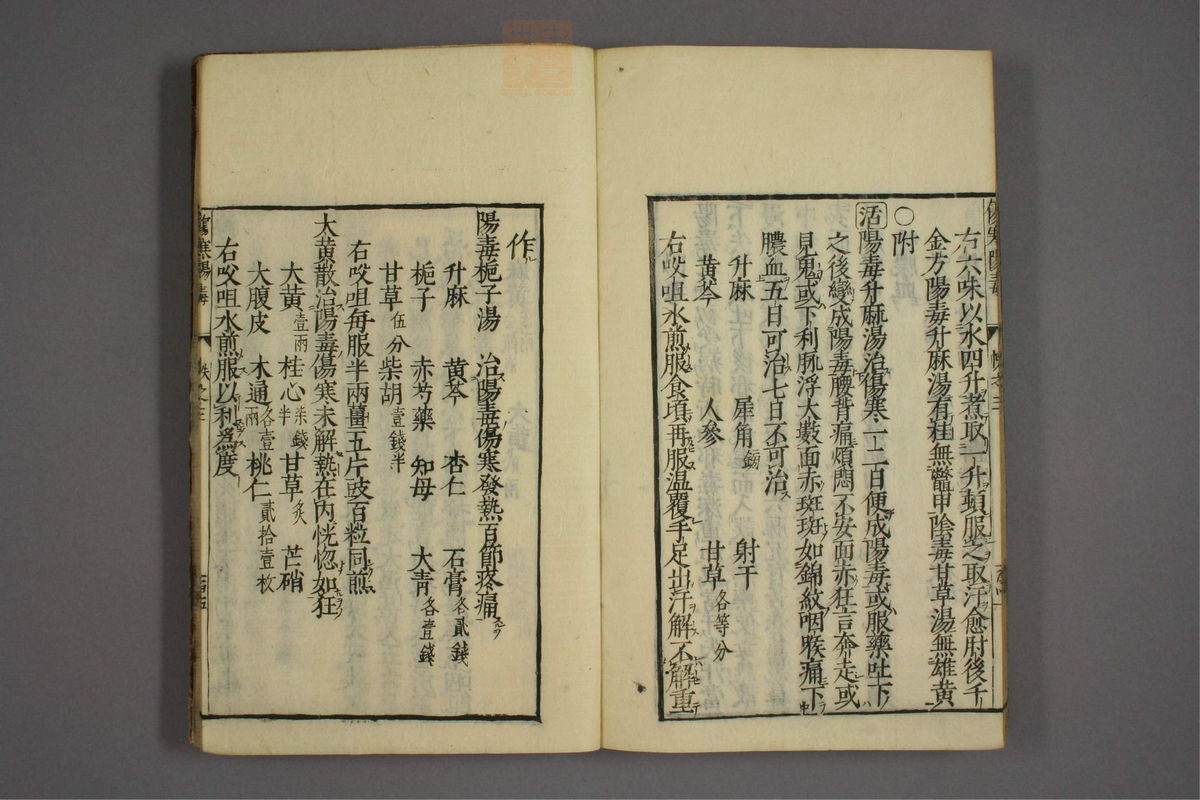 傷寒陽毒
右六味以水四升煮取一升頓服之取汗愈肘後千
金方陽毒升麻湯有桂無鱉甲陰毒甘草湯無雄黄
〇附
活陽毒升麻湯治傷寒一二日便成陽毒或服藥吐下
之後變成陽毒腰背痛煩悶不安面赤狂言奔走或
見鬼或下利脉浮大數面赤斑斑如錦紋咽喉痛下
膿血五日可治七日不可治
升麻 犀角鎊 射干
黄芩 人參 甘草各等分
右㕮咀水煎服食頃再服温覆手足出汗解不解重
作
陽毒梔子湯 治陽毒傷寒發熱百節疼痛
升麻 黄芩 杏仁 石膏各貳錢
梔子 赤芍藥 知母 大青各壹錢
甘草伍分 柴胡壹錢半
右㕮咀每服半兩薑五片豉百粒同煎
大黄散治陽毒傷寒未解熱在内恍惚如狂
大黄壹兩 桂心柒錢半 甘草炙 芒硝
大腹皮 木通各壹兩 桃仁貳拾壹枚
右㕮咀水煎服以利爲度
傷寒陽毒